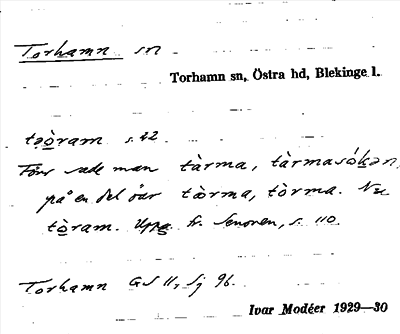 Torhamn sn
Torhamn sn, Östra hd, Blekinge l.
tǝòram s. 42
Förr sade man tàrma, tàrmasókǝn,
på en del öar tòrma, tòrma. Nu
tòram. Uppg. fr. Senoren, s. 110
Torhamn GS II, Sj 96.
Ivar Modéer 1929—30